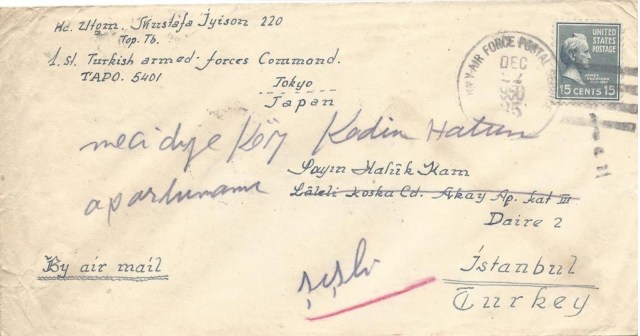 Hd. Utğm. Mustafa İyison 220
Top. Tb.
1. st. Turkish armed-forces Command.
TAPO. 5401
Tokyo
Japan
UNITED
STATES
POSTAGE
15 CENTS 15
AIR FORCE POSTAL
DEC
1950
meci diye Köy Kadın Hatun
apartumanı
Sayın Halûk Kam
Lâleli Koska Cd. Akay Ap. kat III
Daire 2
By air mail
şişli
İstanbul
Turkey